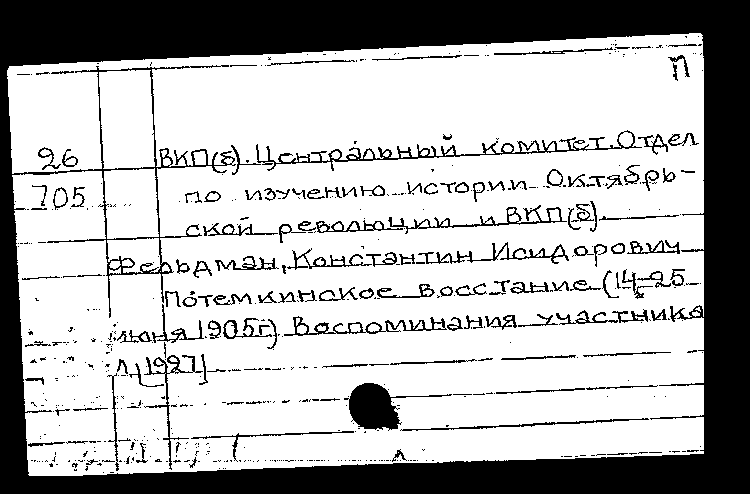 П
26 ВКП(б). Центральный комитет. Отдел
705 по изучению истории Октябрь-
ской революции и ВКП(б).
Фельдман, Константин Исидорович
Потемкинское восстание (14-25
июня 1905г.) Воспоминания участника
Л, [1927]